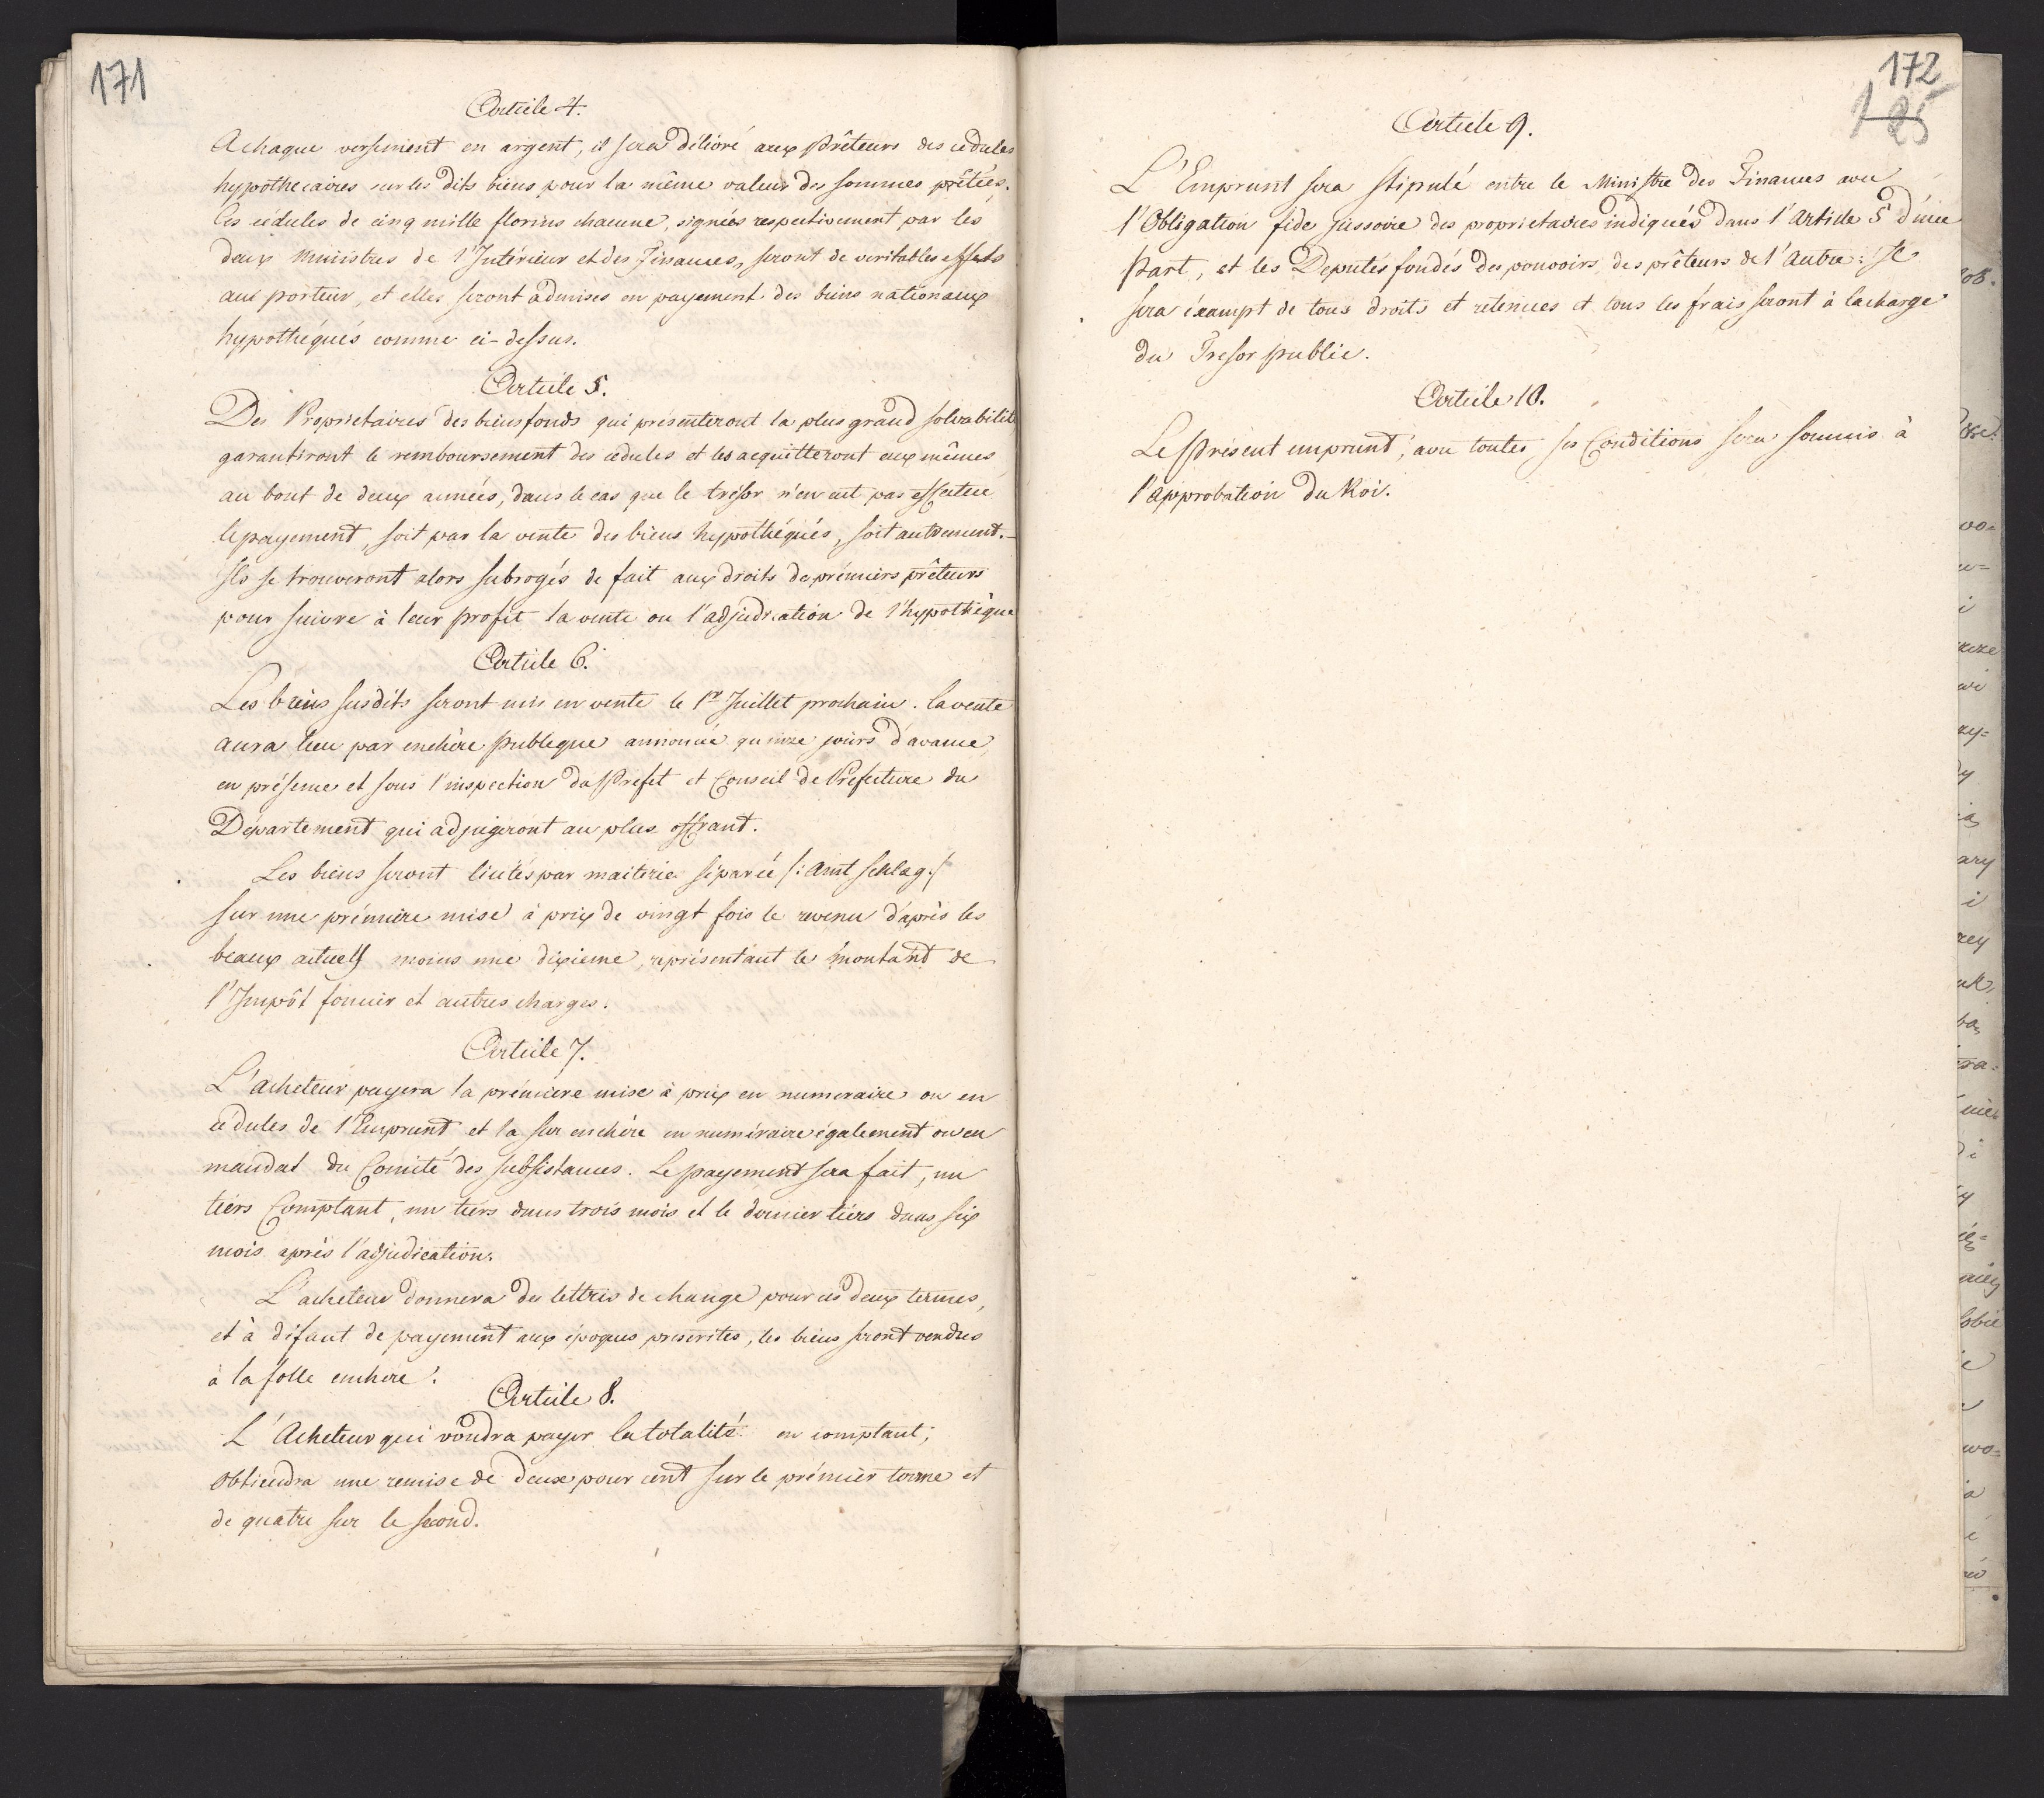 171
Article 4.
A chaque versement en argent, il sera délivré aux Prêteurs des cedules
hypothecaires sur les dits biens pour la même valeur des sommes prêtées.
Ces cédules de cinq mille florins chacune, signées respectivement par les
deux Ministres de l'Intérieur et des Finances, seront de veritables effets
au porteur, et elles seront admises en payement des biens nationaux
hypothéqués comme ci-dessus.
Article 5.
Des Proprietaires des biens fonds qui présenteront la plus grand solvabilité
garantiront le remboursement des cédules et les acquitteront eux mêmes
au bout de deux années, dans le cas que le trésor n'en eut pas effectué
le payement, soit par la vente des biens hypothéqués, soit autrement.–
Ils se trouveront alors subrogés de fait aux droits de prémiers prêteurs
pour suivre à leur profit la vente ou l'adjudication de l'hypothèque
Article 6.
Les biens susdits seront mis en vente le 1er Juillet prochain. la vente
aura lieu par enchère publeque annoncée quinze jours d'avance,
en présence et sous l'inspection du Préfet et Conseil de Prefecture du
Département qui adjugeront au plus offrant.
Les biens seront licités par maiterie séparée /: Amt Schlag :/
sur une prémière mise à prix de vingt fois le revenu d'après les
beaux actuels moins une dixieme, représentant le montant de
l'Impôt foncier et autres charges.
Article 7.
L'acheteur payera la prémiere mise à prix en numeraire ou en
cédules de l'Emprunt et la sur enchère en numéraire également ou en
mandat du Comité des subsistances. Le payement sera fait, un
tiérs Comptant, un tiérs dans trois mois et le dernier tiérs dans six
mois après l'adjudication.
L'acheteur donnera des lettres de change pour ces deux termes,
et à défaut de payement aux époques prescrites, les biens seront vendus
à la folle enchere.
Article 8.
L'Acheteur qui voudra payer la totalité en comptant;
obtiendra une remise de deux pour cent sur le prémier terme et
de quatre sur le second.
172
185
Article 9.
L'Emprunt sera stipulé entre le Ministre des Finances avec
l'Obligation fide jussoire des proprietaires indiqués dans l'Article 5 d'une
Part, et les Deputés fondés des pouvoirs des prêteurs de l'Autre: Il
sera éxampt de tous droits et retenues et tous les frais seront à la charge
du Tresor public.
Article 10.
Le Présent emprunt, avec toutes ses Conditions sera soumis à
l'approbation du Roi.